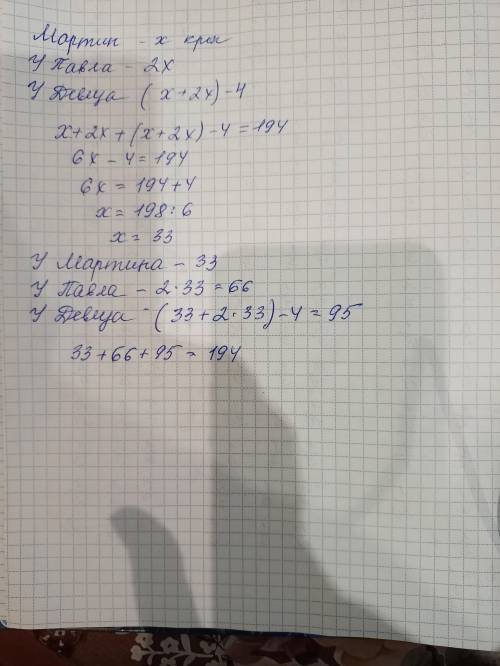 Мартин - x крон
У Павла - 2x
У Демща (x+2x)-4
x+2x+(x+2x)-4=194
6x-4=194
6x=194+4
x=198:6
x=33
У Мартина - 33
У Павла - 2·33=66
У Демща - (33+2·33)-4=95
33+66+95=194